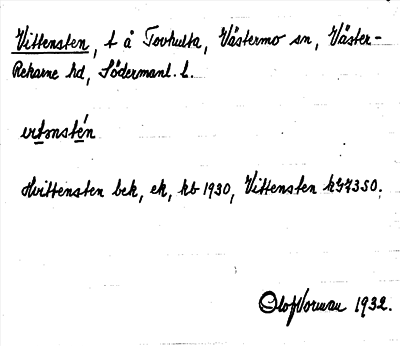 Vittensten, t å Tovhulta, Västermo sn, Väster-
Rekarne hd, Södermanl. l.
vitonstén
Hvittensten bek, ek, kb 1930, Vittensten hG7350.
Olof Vorman 1932.